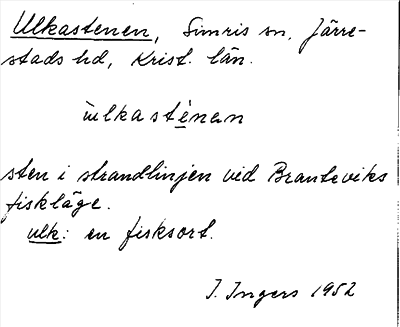 Ulkastenen, Simris sn, Järre-
stads hd, Krist. län.
ùlkasténan
sten i strandlinjen vid Branteviks
fiskläge.
ulk: en fisksort.
I. Ingers 1952